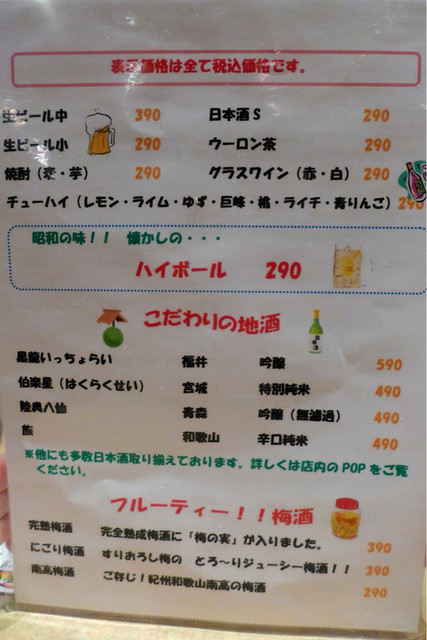 表示価格は全て税込価格です。
生ビール中 390 日本酒S 290
生ビール小 290 ウーロン茶 290
焼酎（麦・芋） 290 グラスワイン（赤・白） 290
チューハイ（レモン・ライム・ゆず・巨峰・桃・ライチ・青りんご） 290
昭和の味！！ 懐かしの・・・
ハイボール 290
こだわりの地酒
黒龍いっちょらい 福井 吟醸 590
伯楽星（はくらくせい） 宮城 特別純米 490
陸奥八仙 青森 吟醸（無濾過） 490
和歌山 辛口純米 490
※他にも多数日本酒取り揃えております。詳しくは店内のPOPをご覧
ください。
フルーティー！！梅酒
完熟梅酒 完全熟成梅酒に「梅の実」が入りました。 390
にごり梅酒 すりおろし梅の とろ〜りジューシー梅酒！！ 390
南高梅酒 ご存じ！紀州和歌山南高の梅酒 290